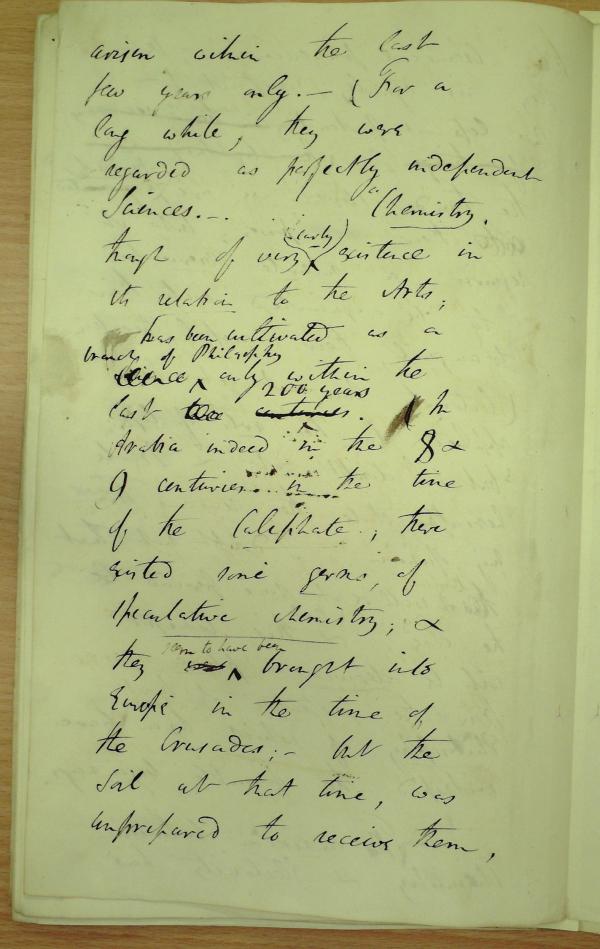 arisen within the last
few years only. — ( For a
long while, they were
regarded as perfectly independent
Sciences. — Chemistry,
though of very (early) existence in
its relation to the Arts,
has been cultivated as a
branch of Philosophy
Science only within the
200 years
last two centuries. ( In
Arabia indeed in the 8 &
9 centuries in the time
of the Caliphate; there
existed some germs, of
speculative chemistry; &
seem to have been
they were brought into
Europe in the time of
the Crusades; — but the
Soil at that time, was
unprepared to receive them,